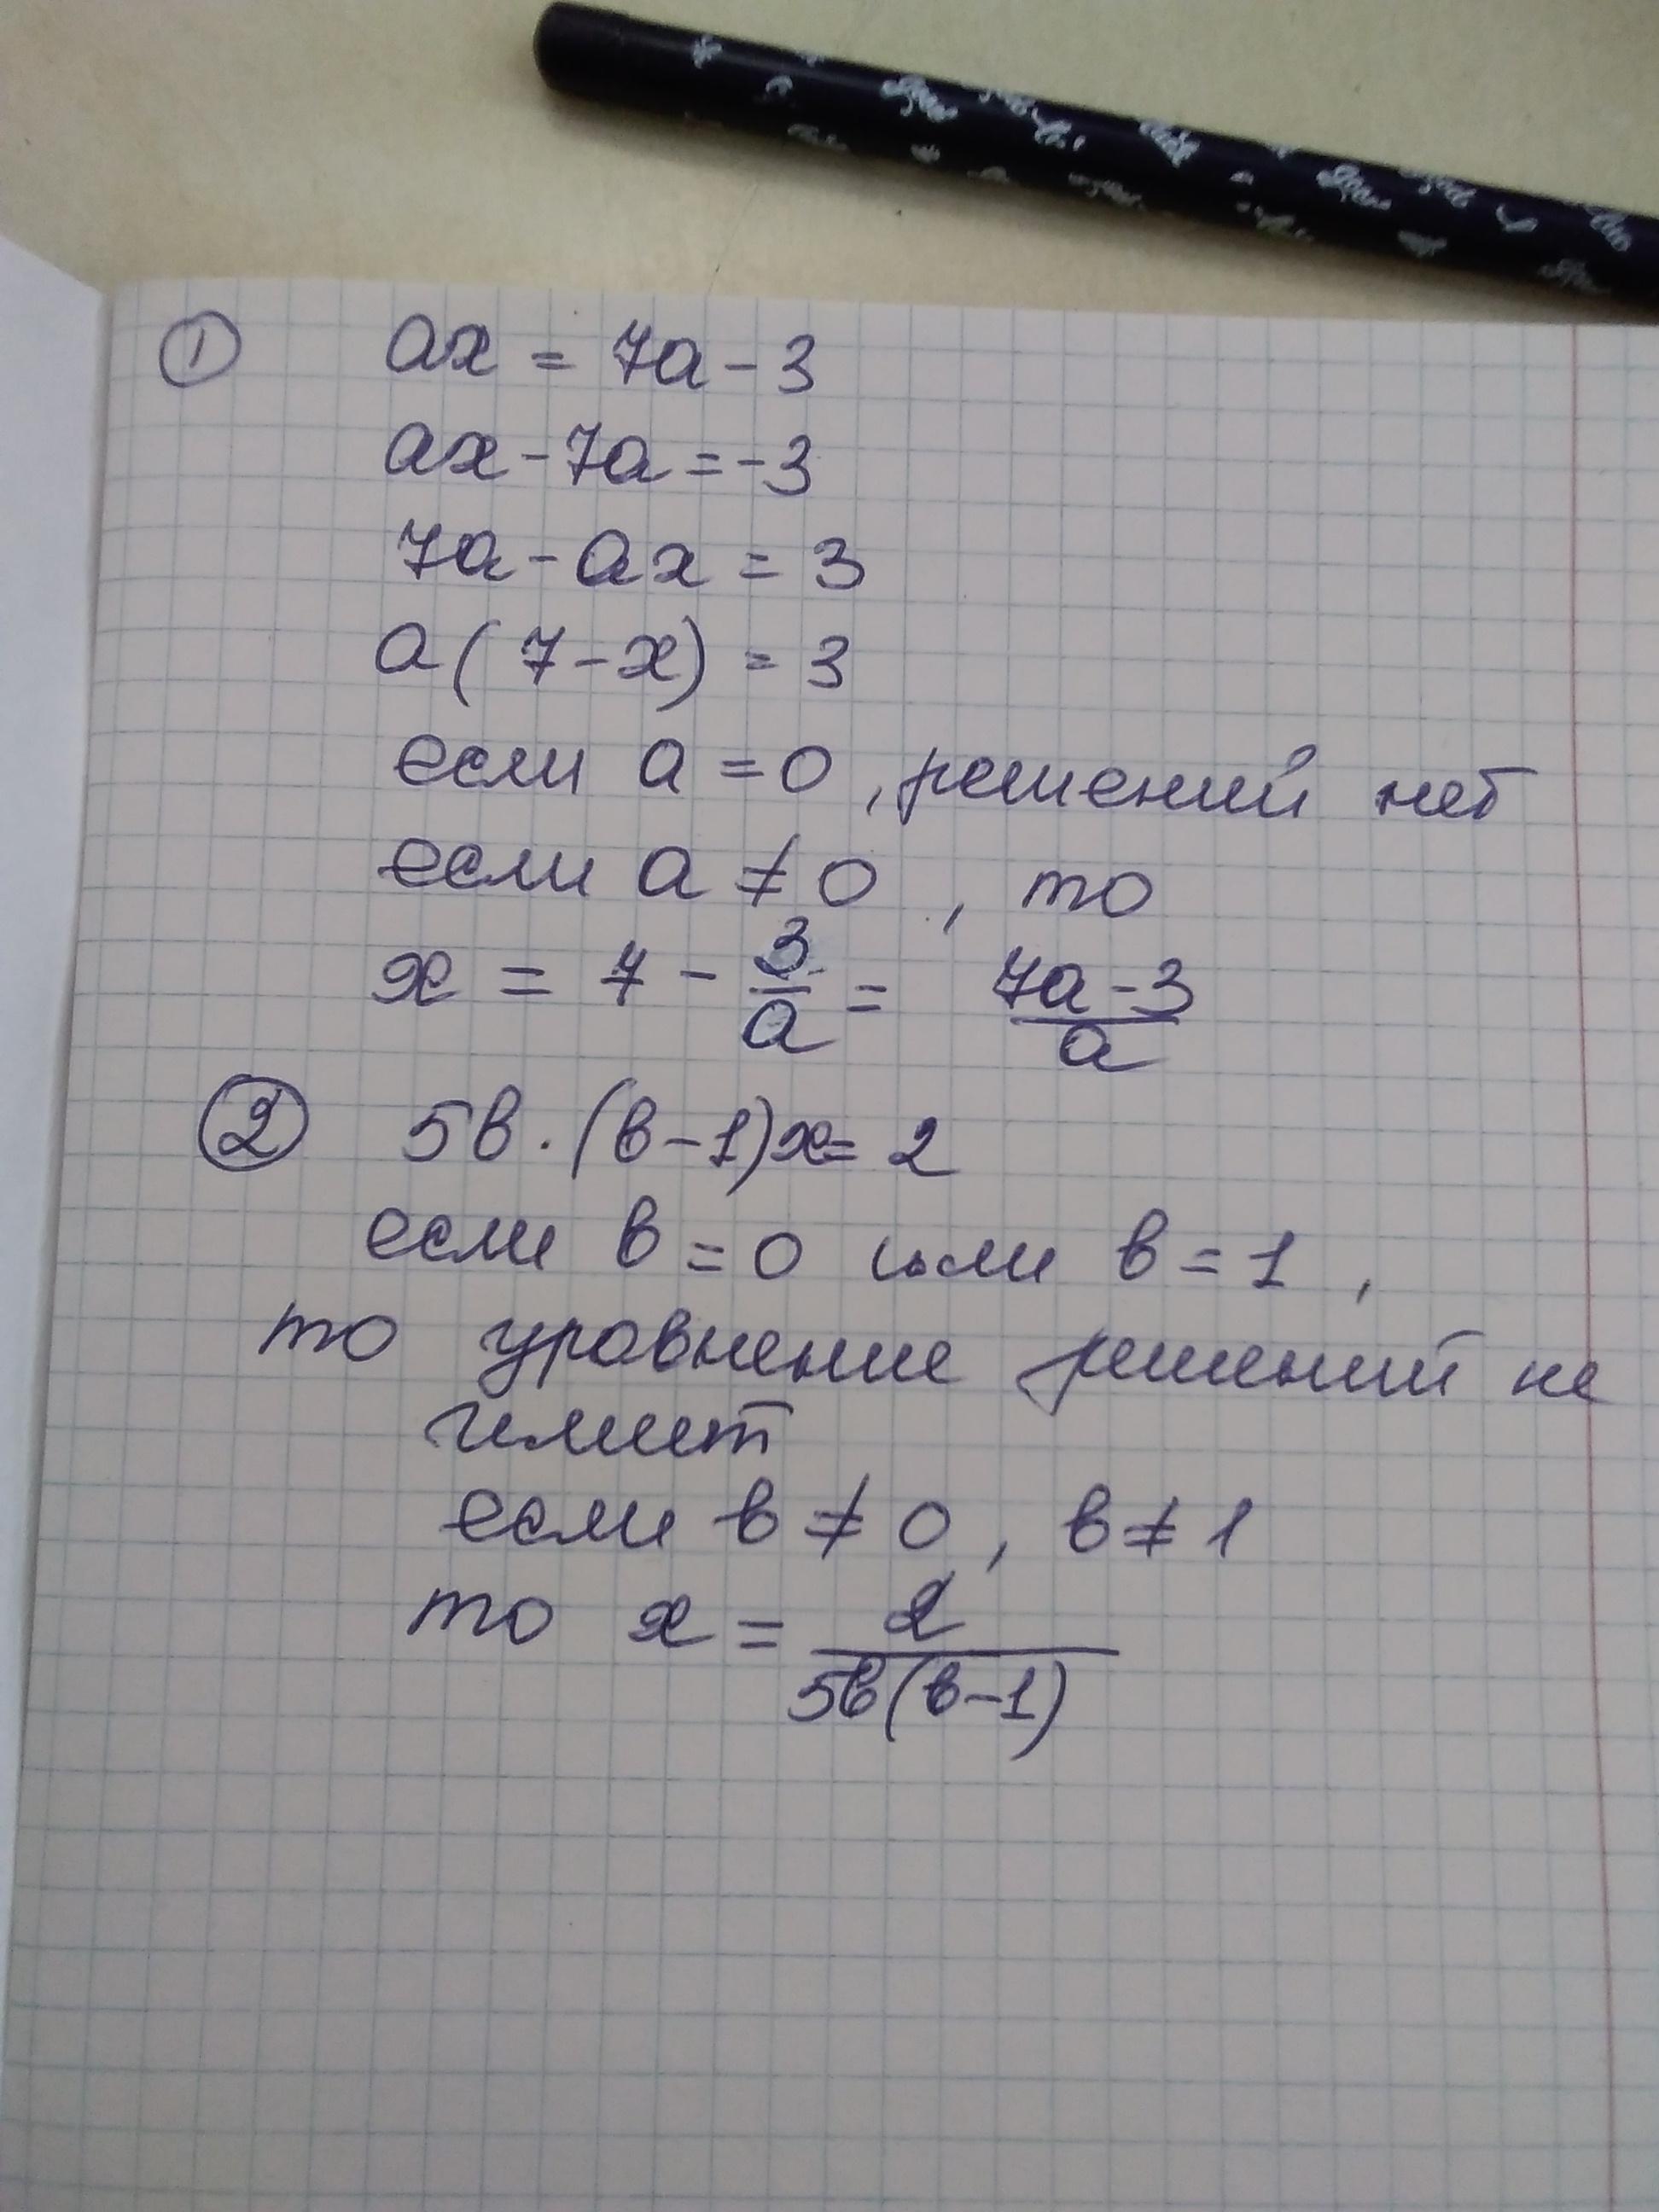 ① ax = 7a - 3
ax - 7a = -3
7a - ax = 3
a(7 - x) = 3
если a = 0, решений нет
если a ≠ 0, то
x = 7 - 3/a = (7a - 3)/a
② 5в · (в - 1)x = 2
если в = 0 или в = 1,
то уровнение решений не
имеет
если в ≠ 0, в ≠ 1
то x = 2/(5в(в - 1))